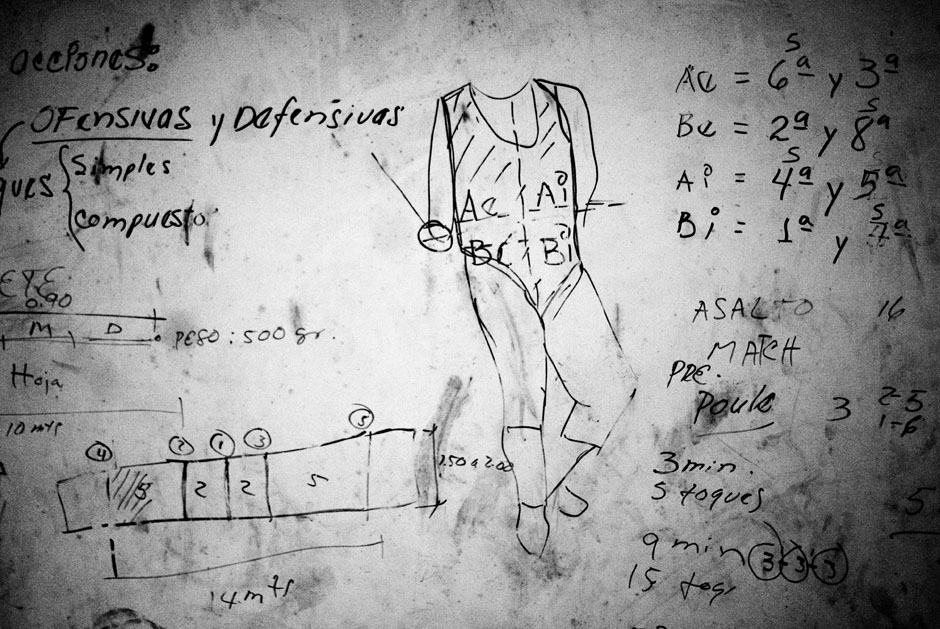 acciones:
OFensivas y Defensivas
ques { simples
compuesto
0.90
M D PESO: 500 gr.
Hoja
10 mts
4 2 1 3 5
5 2 2 5
1.50 a 2.00
14 mts
Ac Ai
Bc Bi
Ac = 6ª y 3ª
s
Bc = 2ª y 8ª
s
Ai = 4ª y 5ª
s
Bi = 1ª y 7ª
s
ASALTO 16
MATCH
PRE.
Poule 3 2-5
1-6
3 min.
5 toques 5
9 min 3 3 3
15 toq